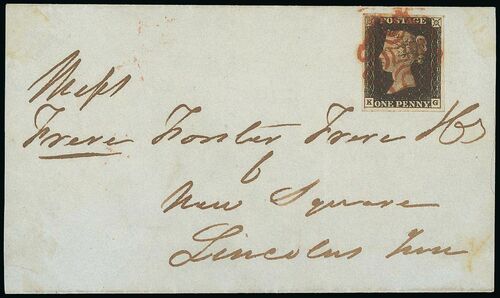 POSTAGE
K G
ONE PENNY
Messrs
Frere Forster Frere &Co
6
New Square
Lincolns Inn